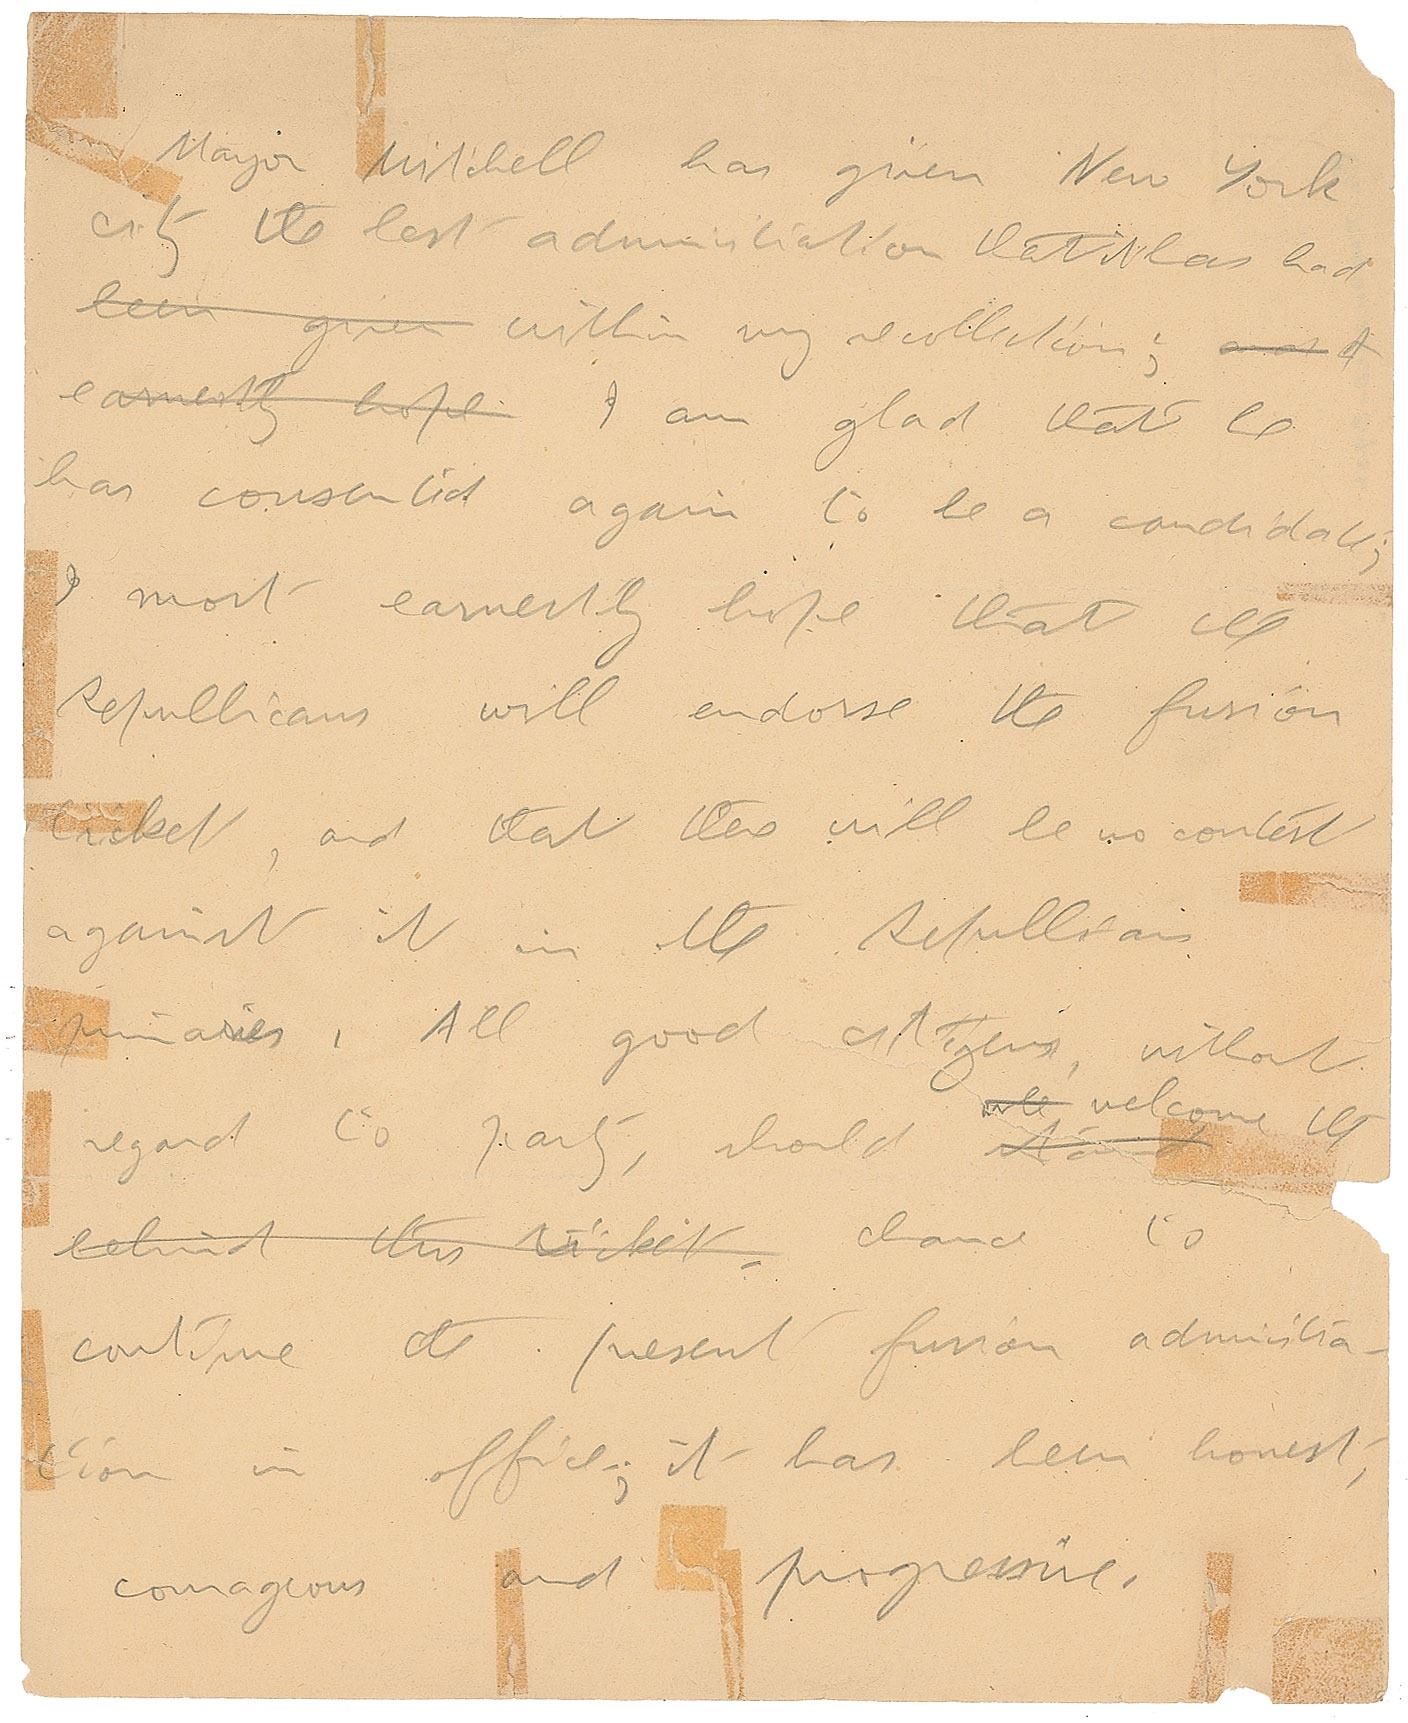 Mayor Mitchell has given New York
city the best administration that it has had
been given within my recollection; and I
earnestly hope I am glad that he
has consented again to be a candidate;
I most earnestly hope that the
Republicans will endorse the fusion
ticket, and that there will be no contest
against it in the Republican
primaries. All good citizens, without
regard to party, should stand welcome the
behind this ticket. chance to
continue the present fusion administra-
tion in office; it has been honest,
courageous and progressive.